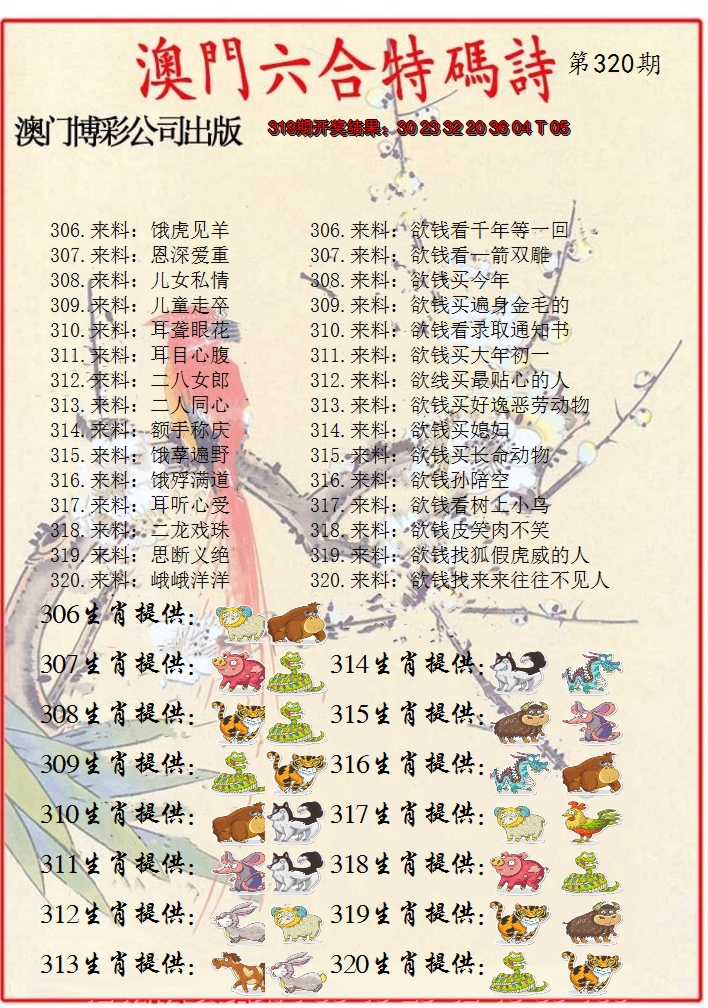 澳門六合特碼詩 第320期
澳门博彩公司出版 319期开奖结果：30 23 32 20 36 04 T 05
306.来料：饿虎见羊 306.来料：欲钱看千年等一回
307.来料：恩深爱重 307.来料：欲钱看一箭双雕
308.来料：儿女私情 308.来料：欲钱买今年
309.来料：儿童走卒 309.来料：欲钱买遍身金毛的
310.来料：耳聋眼花 310.来料：欲钱看录取通知书
311.来料：耳目心腹 311.来料：欲钱买大年初一
312.来料：二八女郎 312.来料：欲线买最贴心的人
313.来料：二人同心 313.来料：欲钱买好逸恶劳动物
314.来料：额手称庆 314.来料：欲钱买媳妇
315.来料：饿莩遍野 315.来料：欲钱买长命动物
316.来料：饿殍满道 316.来料：欲钱孙陪空
317.来料：耳听心受 317.来料：欲钱看树上小鸟
318.来料：二龙戏珠 318.来料：欲钱皮笑肉不笑
319.来料：思断义绝 319.来料：欲钱找狐假虎威的人
320.来料：峨峨洋洋 320.来料：欲钱找来来往往不见人
306生肖提供：
307生肖提供： 314生肖提供：
308生肖提供： 315生肖提供：
309生肖提供： 316生肖提供：
310生肖提供： 317生肖提供：
311生肖提供： 318生肖提供：
312生肖提供： 319生肖提供：
313生肖提供： 320生肖提供：